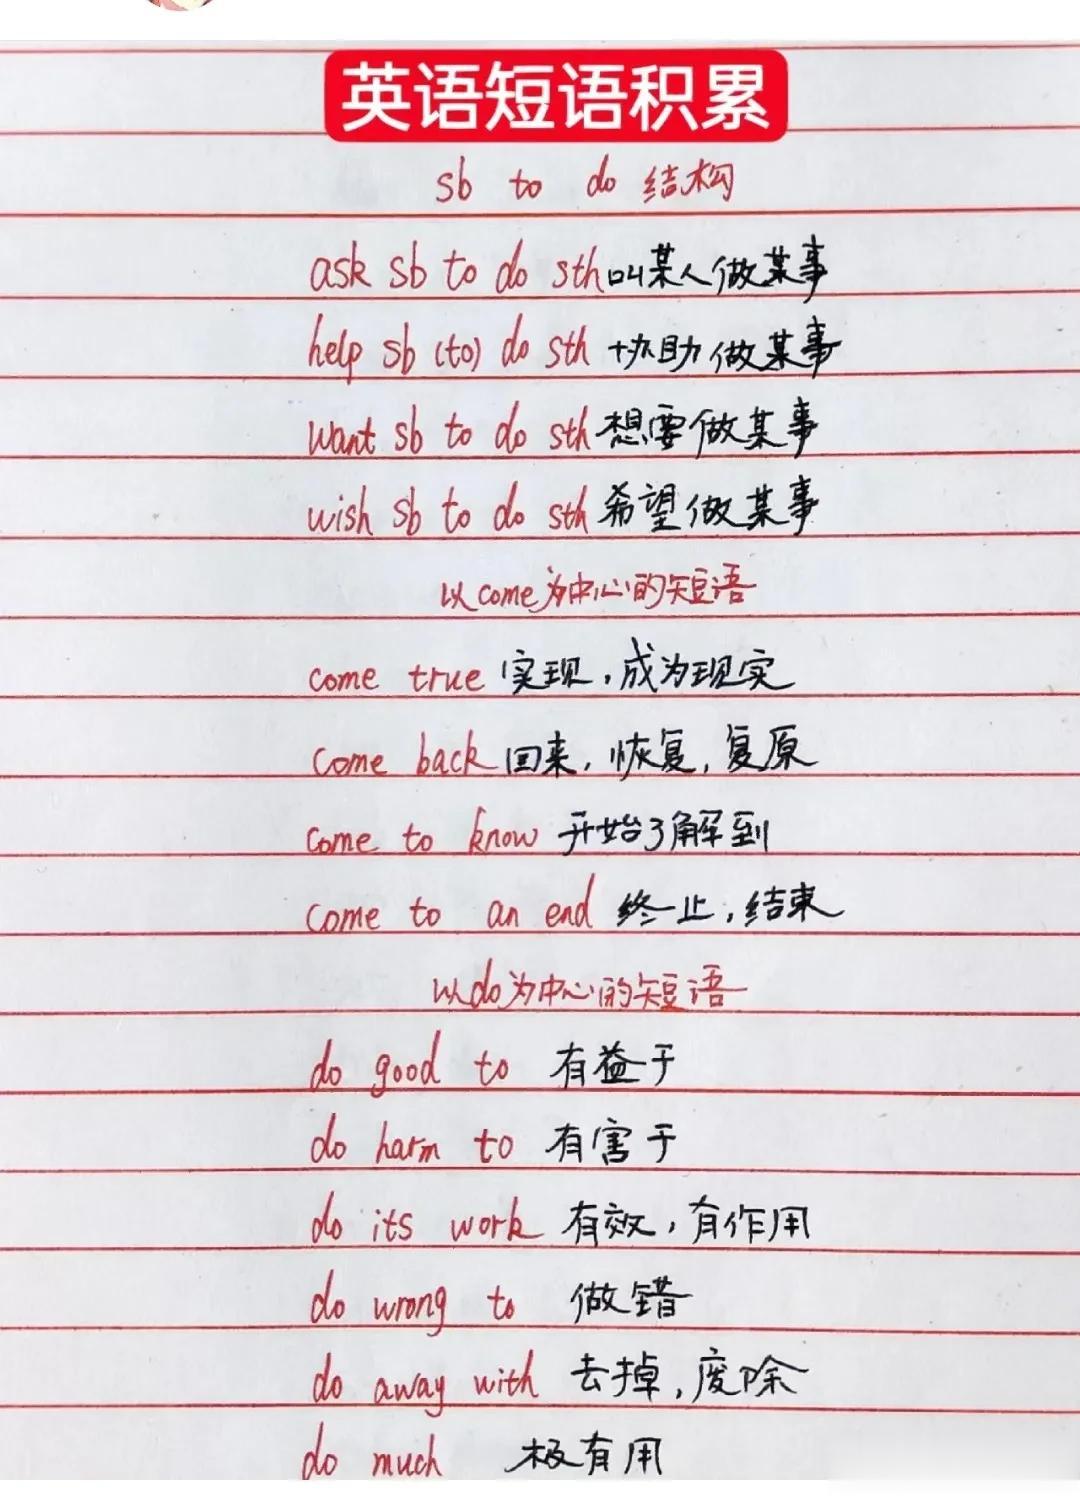 英语短语积累
sb to do 结构
ask sb to do sth 叫某人做某事
help sb (to) do sth 协助做某事
want sb to do sth 想要做某事
wish sb to do sth 希望做某事
以come为中心的短语
come true 实现,成为现实
come back 回来,恢复,复原
come to know 开始了解到
come to an end 终止,结束
以do为中心的短语
do good to 有益于
do harm to 有害于
do its work 有效,有作用
do wrong to 做错
do away with 去掉,废除
do much 极有用